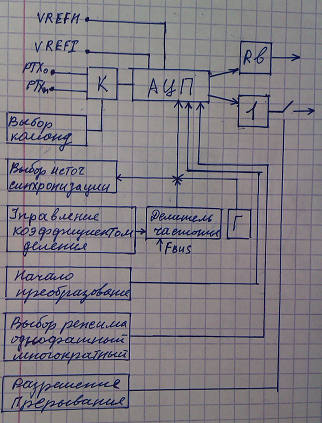 VREFH
VREFI
PTX₀
PTXₘ
K
АЦП
Rв
1
Выбор
команд
Выбор источ
синхронизации
Управление
коэффициентом
деления
Делитель
частоты
Г
FBUS
Начало
преобразование
Выбор режима
однофазный
многократный
Разрешение
Прерывания